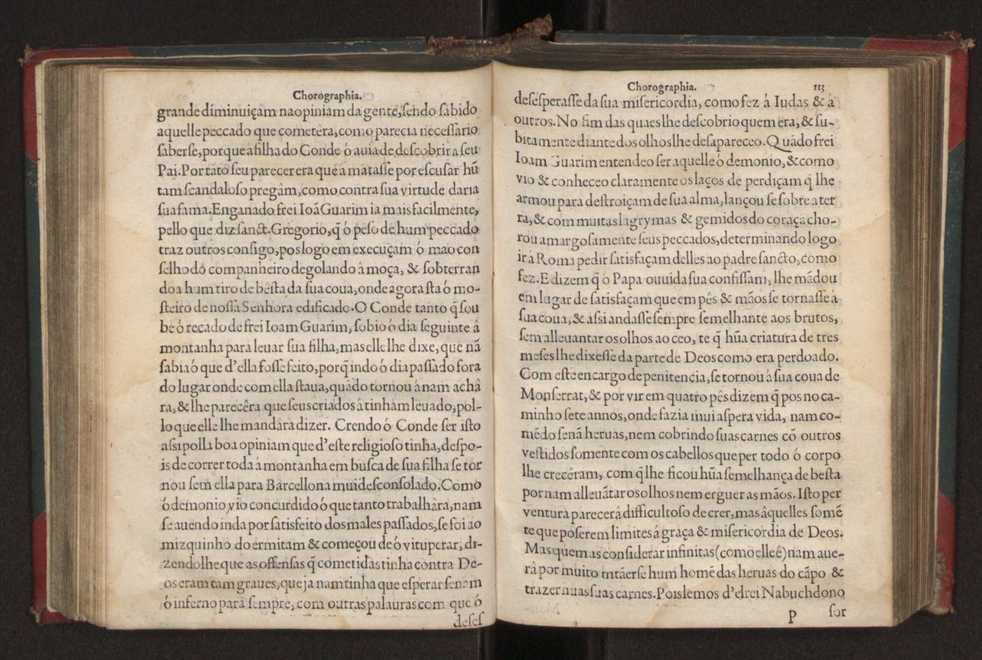 Chorographia.
grande diminuiçam na opiniam da gente, sendo sabido
aquelle peccado que cometèra, como parecia necessario
saberse, porque a filha do Conde ó auia de descobrir a seu
Pai. Portato seu parecer era que a matasse por escusar hũ
tam scandaloso pregam, como contra sua virtude daria
sua fama. Enganado frei Ioã Guarim ia mais facilmente,
pello que diz sanct. Gregorio, q̃ ó peso de hum peccado
traz outros consigo, pos logo em execuçam ó mao con
selho dó companheiro degolando à moça, & sobterran
do a hum tiro de bèsta da sua coua, onde agora sta ó mo-
steiro de nossa Senhora edificado. O Conde tanto q̃ sou
be ó recado de frei Ioam Guarim, sobio ó dia seguinte á
montanha para leuar sua filha, mas elle lhe dixe, que nã
sabia ó que d'ella fosse feito, porq̃ indo ó dia passado fora
do lugar onde com ella staua, quãdo tornou à nam achâ
ra, & lhe parecèra que seus criados à tinham leuado, pol-
lo que elle lhe mandàra dizer. Crendo ó Conde ser isto
assi polla boa opiniam que d'este religioso tinha, despo-
is de correr toda á montanha em busca de sua filha se tor
nou sem ella para Barcellona mui desconsolado. Como
ó demonio vio concurdido ó que tanto trabalhàra, nam
se auendo inda por satisfeito dos males passados, se foi ao
mizquinho do ermitam & começou de ó vituperar, di-
zendolhe que as offensas q̃ cometidas tinha contra De-
os eram tam graues, que ja nam tinha que esperar senam
ó inferno para sempre, com outras palauras com que ó
deses
Chorographia. 113
desesperasse da sua misericordia, como fez á Iudas & á
outros. No fim das quaes lhe descobrio quem era, & su-
bitamente diante dos olhos lhe desapareceo. Quãdo frei
Ioam Guarim entendeo ser aquelle ó demonio, & como
vio & conheceo claramente os laços de perdiçam q̃ lhe
armou para destroiçam de sua alma, lançou se sobre a ter
ra, & com muitas lagrymas & gemidos do coraça cho-
rou amargosamente seus peccados, determinando logo
ir á Roma pedir satisfaçam delles ao padre sancto, como
fez. E dizem q̃ ó Papa ouuida sua confissam, lhe mãdou
em lugar de satisfaçam que em pès & mãos se tornasse à
sua coua, & assi andasse sempre semelhante aos brutos,
sem alleuantar os olhos ao ceo, te q̃ hũa criatura de tres
meses lhe dixesse da parte de Deos como era perdoado.
Com este encargo de penitencia, se tornou á sua coua de
Monserrat, & por vir em quatro pès dizem q̃ pos no ca-
minho sete annos, onde fazia mui aspera vida, nam co-
mẽdo senã heruas, nem cobrindo suas carnes cõ outros
vestidos somente com os cabellos que per todo ó corpo
lhe crecèram, com q̃ lhe ficou hũa semelhança de besta
por nam alleuãtar os olhos nem erguer as mãos. Isto per
ventura parecerà difficultoso de crer, mas àquelles somẽ
te que poserem limites á graça & misericordia de Deos.
Mas quem as considerar infinitas (como elle é) nam aue-
rá por muito mtãerse hum homẽ das heruas do cãpo &
trazer nuas suas carnes. Pois lemos d'el rei Nabuchdono
P sor